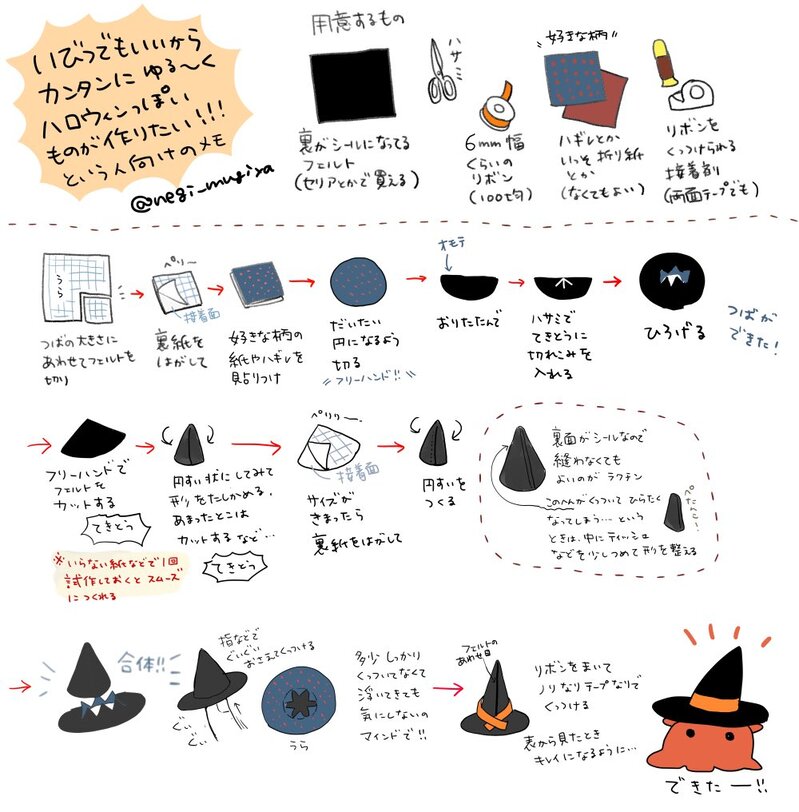 いびつでもいいから
カンタンに ゆる〜く
ハロウィンっぽい
ものが作りたい!!!
という人向けのメモ
@negi_mugiya
用意するもの
裏がシールになってる
フェルト
(セリアとかで買える)
ハサミ
6mm幅
くらいの
リボン
(100均)
好きな柄
ハギレとか
いっそ折り紙
とか
(なくてもよい)
リボンを
くっつけられる
接着剤
(両面テープでも)
うら
つばの大きさに
あわせてフェルトを
切り
ペリー
接着面
裏紙を
はがして
好きな柄の
紙やハギレを
貼りつけ
だいたい
円になるよう
切る
フリーハンド!!
オモテ
おりたたんで
ハサミで
てきとうに
切れこみを
入れる
ひろげる
つばが
できた!
フリーハンドで
フェルトを
カットする
てきとう
※いらない紙などで1回
試作しておくと スムーズ
につくれる
円すい状にしてみて
形をたしかめる、
あまったとこは
カットする など…
てきとう
ペリリー
接着面
サイズが
きまったら
裏紙をはがして
円すいを
つくる
裏面がシールなので
縫わなくても
よいのがラクチン
このへんがくっついて ひらたく
なってしまう… という
ときは、中にティッシュ
などを少しつめて形を整える
ぺたんこ…
合体!!
指などで
ぐいぐい
おさえてくっつける
ぐい
ぐい
うら
多少 しっかり
くっついてなくて
浮いてきても
気にしないの
マインドで!!
フェルトの
あわせ目
リボンをまいて
ノリなりテープなりで
くっつける
表から見たとき
キレイになるように…
できたー!!